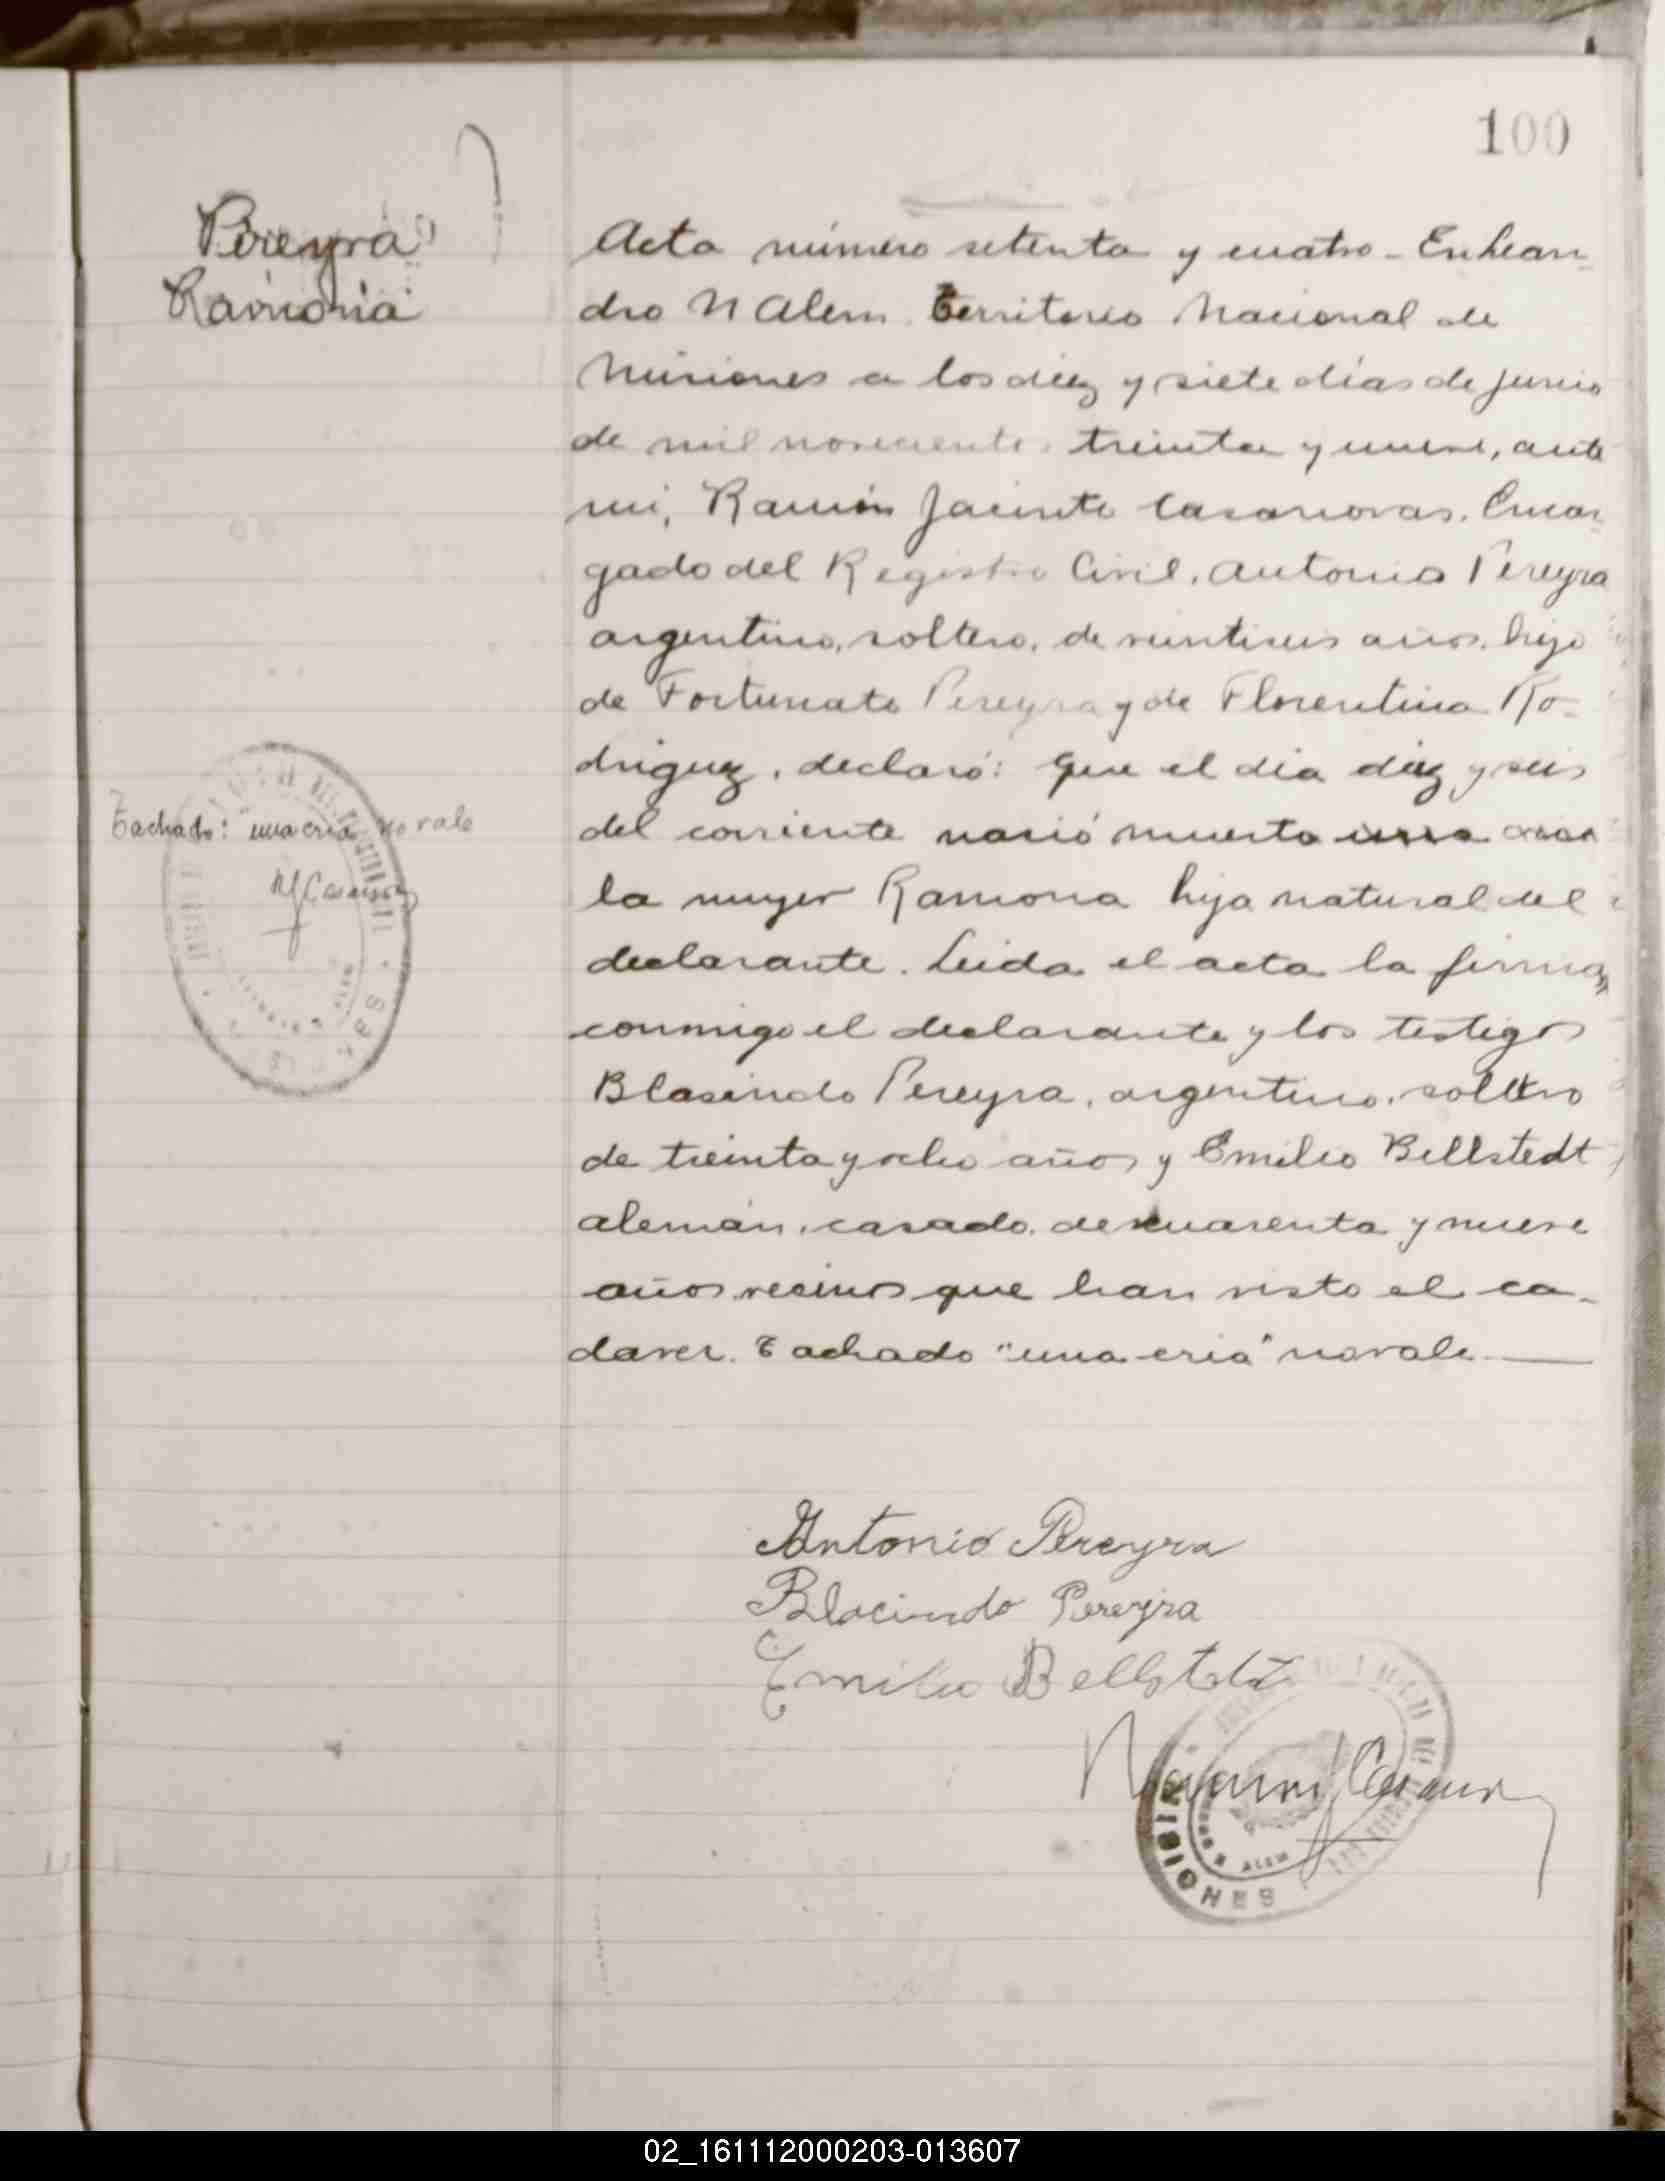 100
Pereyra
Ramona
Acta número setenta y cuatro - En Lean-
dro N Alem Territorio Nacional de
Misiones a los diez y siete días de junio
de mil novecientos treinta y nueve, ante
mí, Ramón Jacinto Casanovas, Encar-
gado del Registro Civil, Antonio Pereyra
argentino, soltero, de veintiseis años, hijo
de Fortunato Pereyra y de Florentina Ro-
driguez, declaró: Que el dia diez y seis
del corriente nació muerta una cria
la mujer Ramona hija natural del
declarante. Leida el acta la firman
conmigo el declarante y los testigos
Blasindo Pereyra, argentino, soltero
de treinta y ocho años y Emilio Bellstedt
alemán, casado, de cuarenta y nueve
años vecinos que han visto el ca-
daver. Tachado "una cria" no vale
Tachado: "una cria" no vale
RJCasanovas
Antonio Pereyra
Blacindo Pereyra
Emilio Bellstedt
Ramón J Casanovas
MISIONES
ALEM
02_161112000203-013607